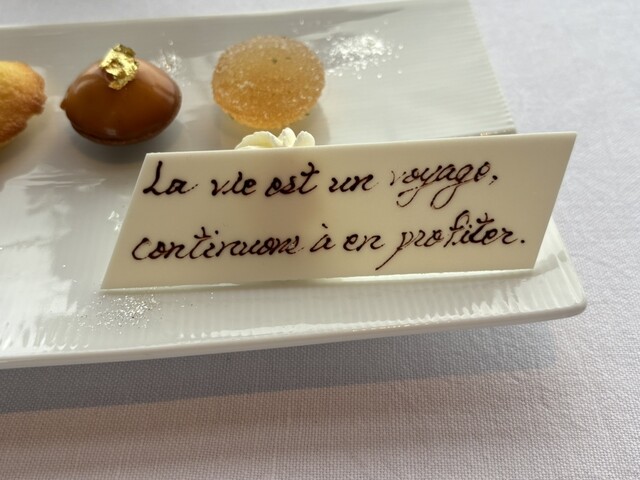 La vie est un voyage,
continuons à en profiter.